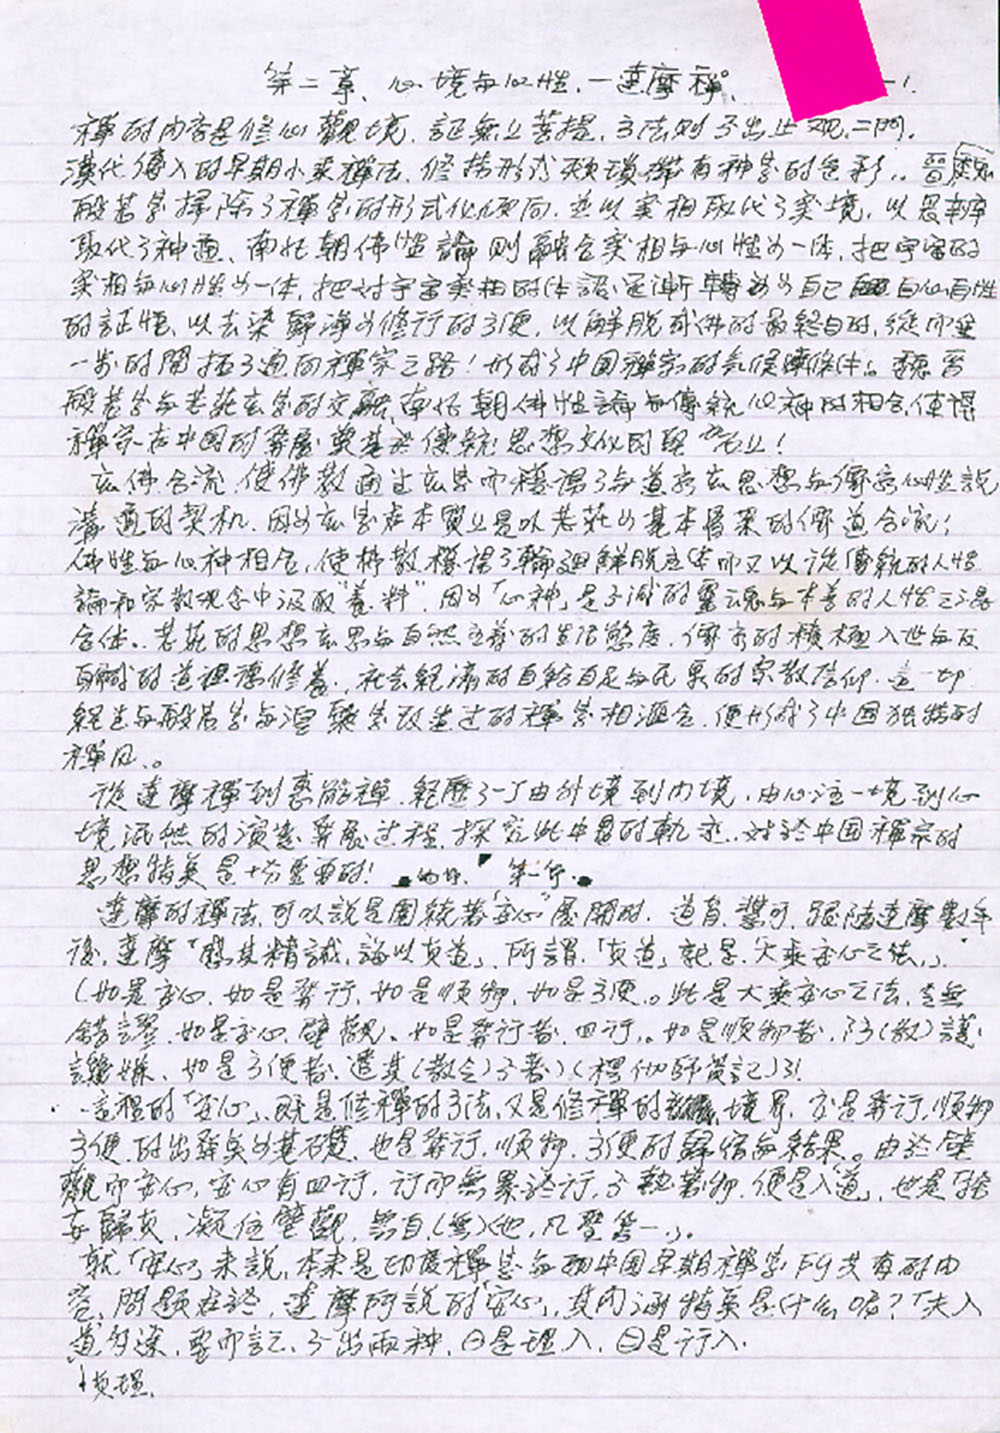 第二章、心境与心性.一達摩禪。 -1.
禪的内容是修心觀境,証無上菩提,方法则不出止观二門.
漢代傳入的早期小乘禪法,修持形式烦瑣,帶有神学的色彩..晋魏
般若学掃除了禪学的形式化倾向,並以实相取代了实境,以思辨
取代了神通、南北朝佛性論则融合实相与心性为一体,把宇宙的
实相与心性为一体,把对宇宙实相的体認逐渐轉为为自己自心自性
的証悟,以去染歸净为修行的方便,以解脱成佛的最終目的,從而
一步的開拓了通向禪宗之路!形成了中国禪宗的氣候條件。魏晋
般若学与老莊玄学的交融,南北朝佛性論与傳統心神的相合,使得
禪宗在中国的發展奠基於傳統思想文化之上!
玄佛合流,使佛教通过玄学而獲得了与道家玄思想与儒家心性説
溝通的契机.因为玄学在本質上是以老莊为基本骨架的儒道合流;
佛性与心神相合,使佛教獲得了輪廻解脱主体而又以從傳統的人性
論和宗教观念中汲取"養料".因为「心神」是不滅的靈魂与本善的人性之混
合体..老莊的思想玄思与自然主義的生活態度,儒家的積極入世与反
的道德修養.,社会經濟的自給自足与民衆的宗教信仰.這一切
經过与般若学与涅槃学改造过的禪学相滙合,便形成了中国独特的
禪风.。
從達摩禪到惠能禪.經歷了一个由外境到内境,由心注一境到心
境泯然的演變發展过程,探究此中的軌迹..对於中国禪宗的
思想特質是十分重要的!
達摩的禪法,可以說是圍繞著「安心」展開的.道育.慧可.跟隨達摩數年
後,達摩「感其精誠,誨以真道」,所謂「真道」就是「大乘安心之法」,
(如是安心,如是發行,如是順物,如是方便。此是大乘安心之法,令無
錯謬.如是安心.壁觀、如是發行者.四行。如是順物者,防(教)護
譏嫌、如是方便者,遣其(教令)不著)(楞伽師資記)3!
這裡的「安心」,既是修禪的方法,又是修禪的境界.亦是發行,順物
方便的出發點为基礎.也是發行,順物,方便的歸宿与結果。由於壁
觀而安心,安心有四行,行而無累於行,不執著物,便是入道」,也是「捨
妄歸真,凝住壁觀,無自(無)他,凡聖等一」。
就「安心」来說,本来是印度禪学与初中国早期禪学所共有的内
容,問題在於,達摩所説的「安心」,其内涵特質是什么呢?「夫入
道多途,要而言之,不出兩种,㊀是理入,㊁是行入.
真理.